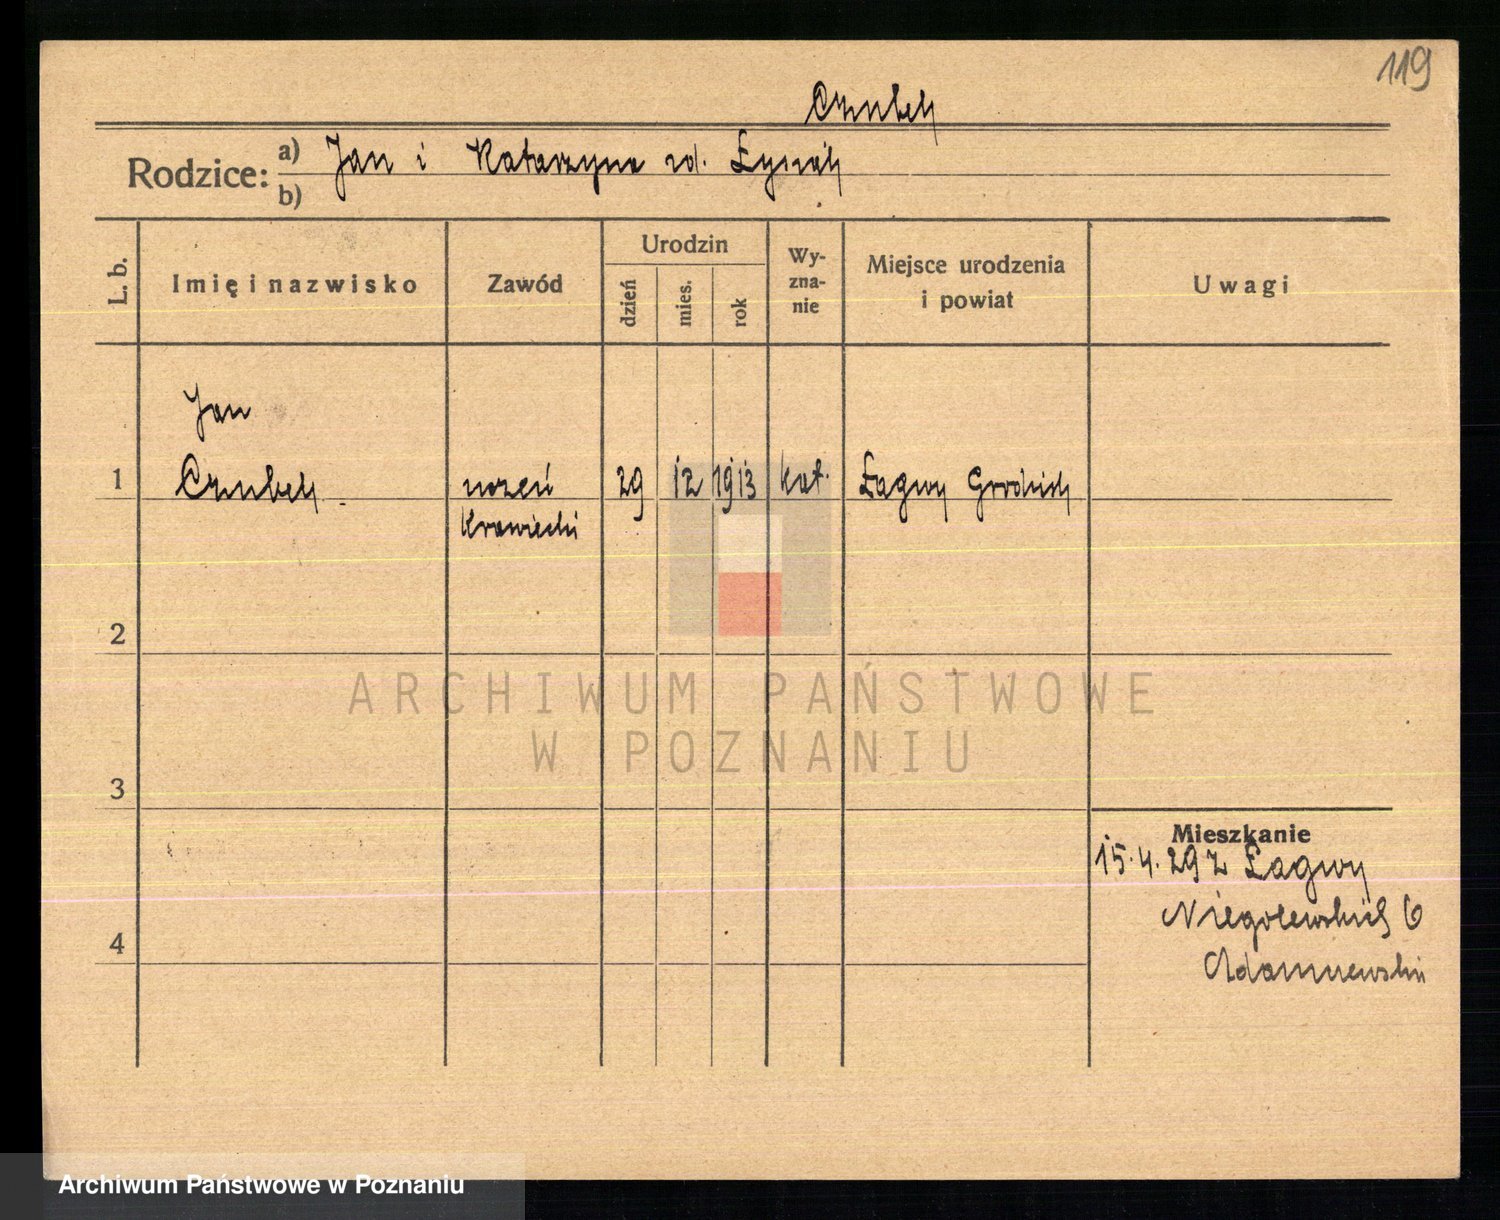 119
Czubek
Rodzice: a) Jan i Katarzyna zd.
b)
L. b.
Imię i nazwisko
Zawód
Urodzin
dzień
mies.
rok
Wy-
zna-
nie
Miejsce urodzenia
i powiat
Uwagi
Jan
1 Czubek uczeń 29 12 1913 kat. Łagwy Grodzisk
krawiecki
2
ARCHIWUM PAŃSTWOWE
W POZNANIU
3
Mieszkanie
15.4.29 z Łagwy
Niegolewskich 6
4
Archiwum Państwowe w Poznaniu